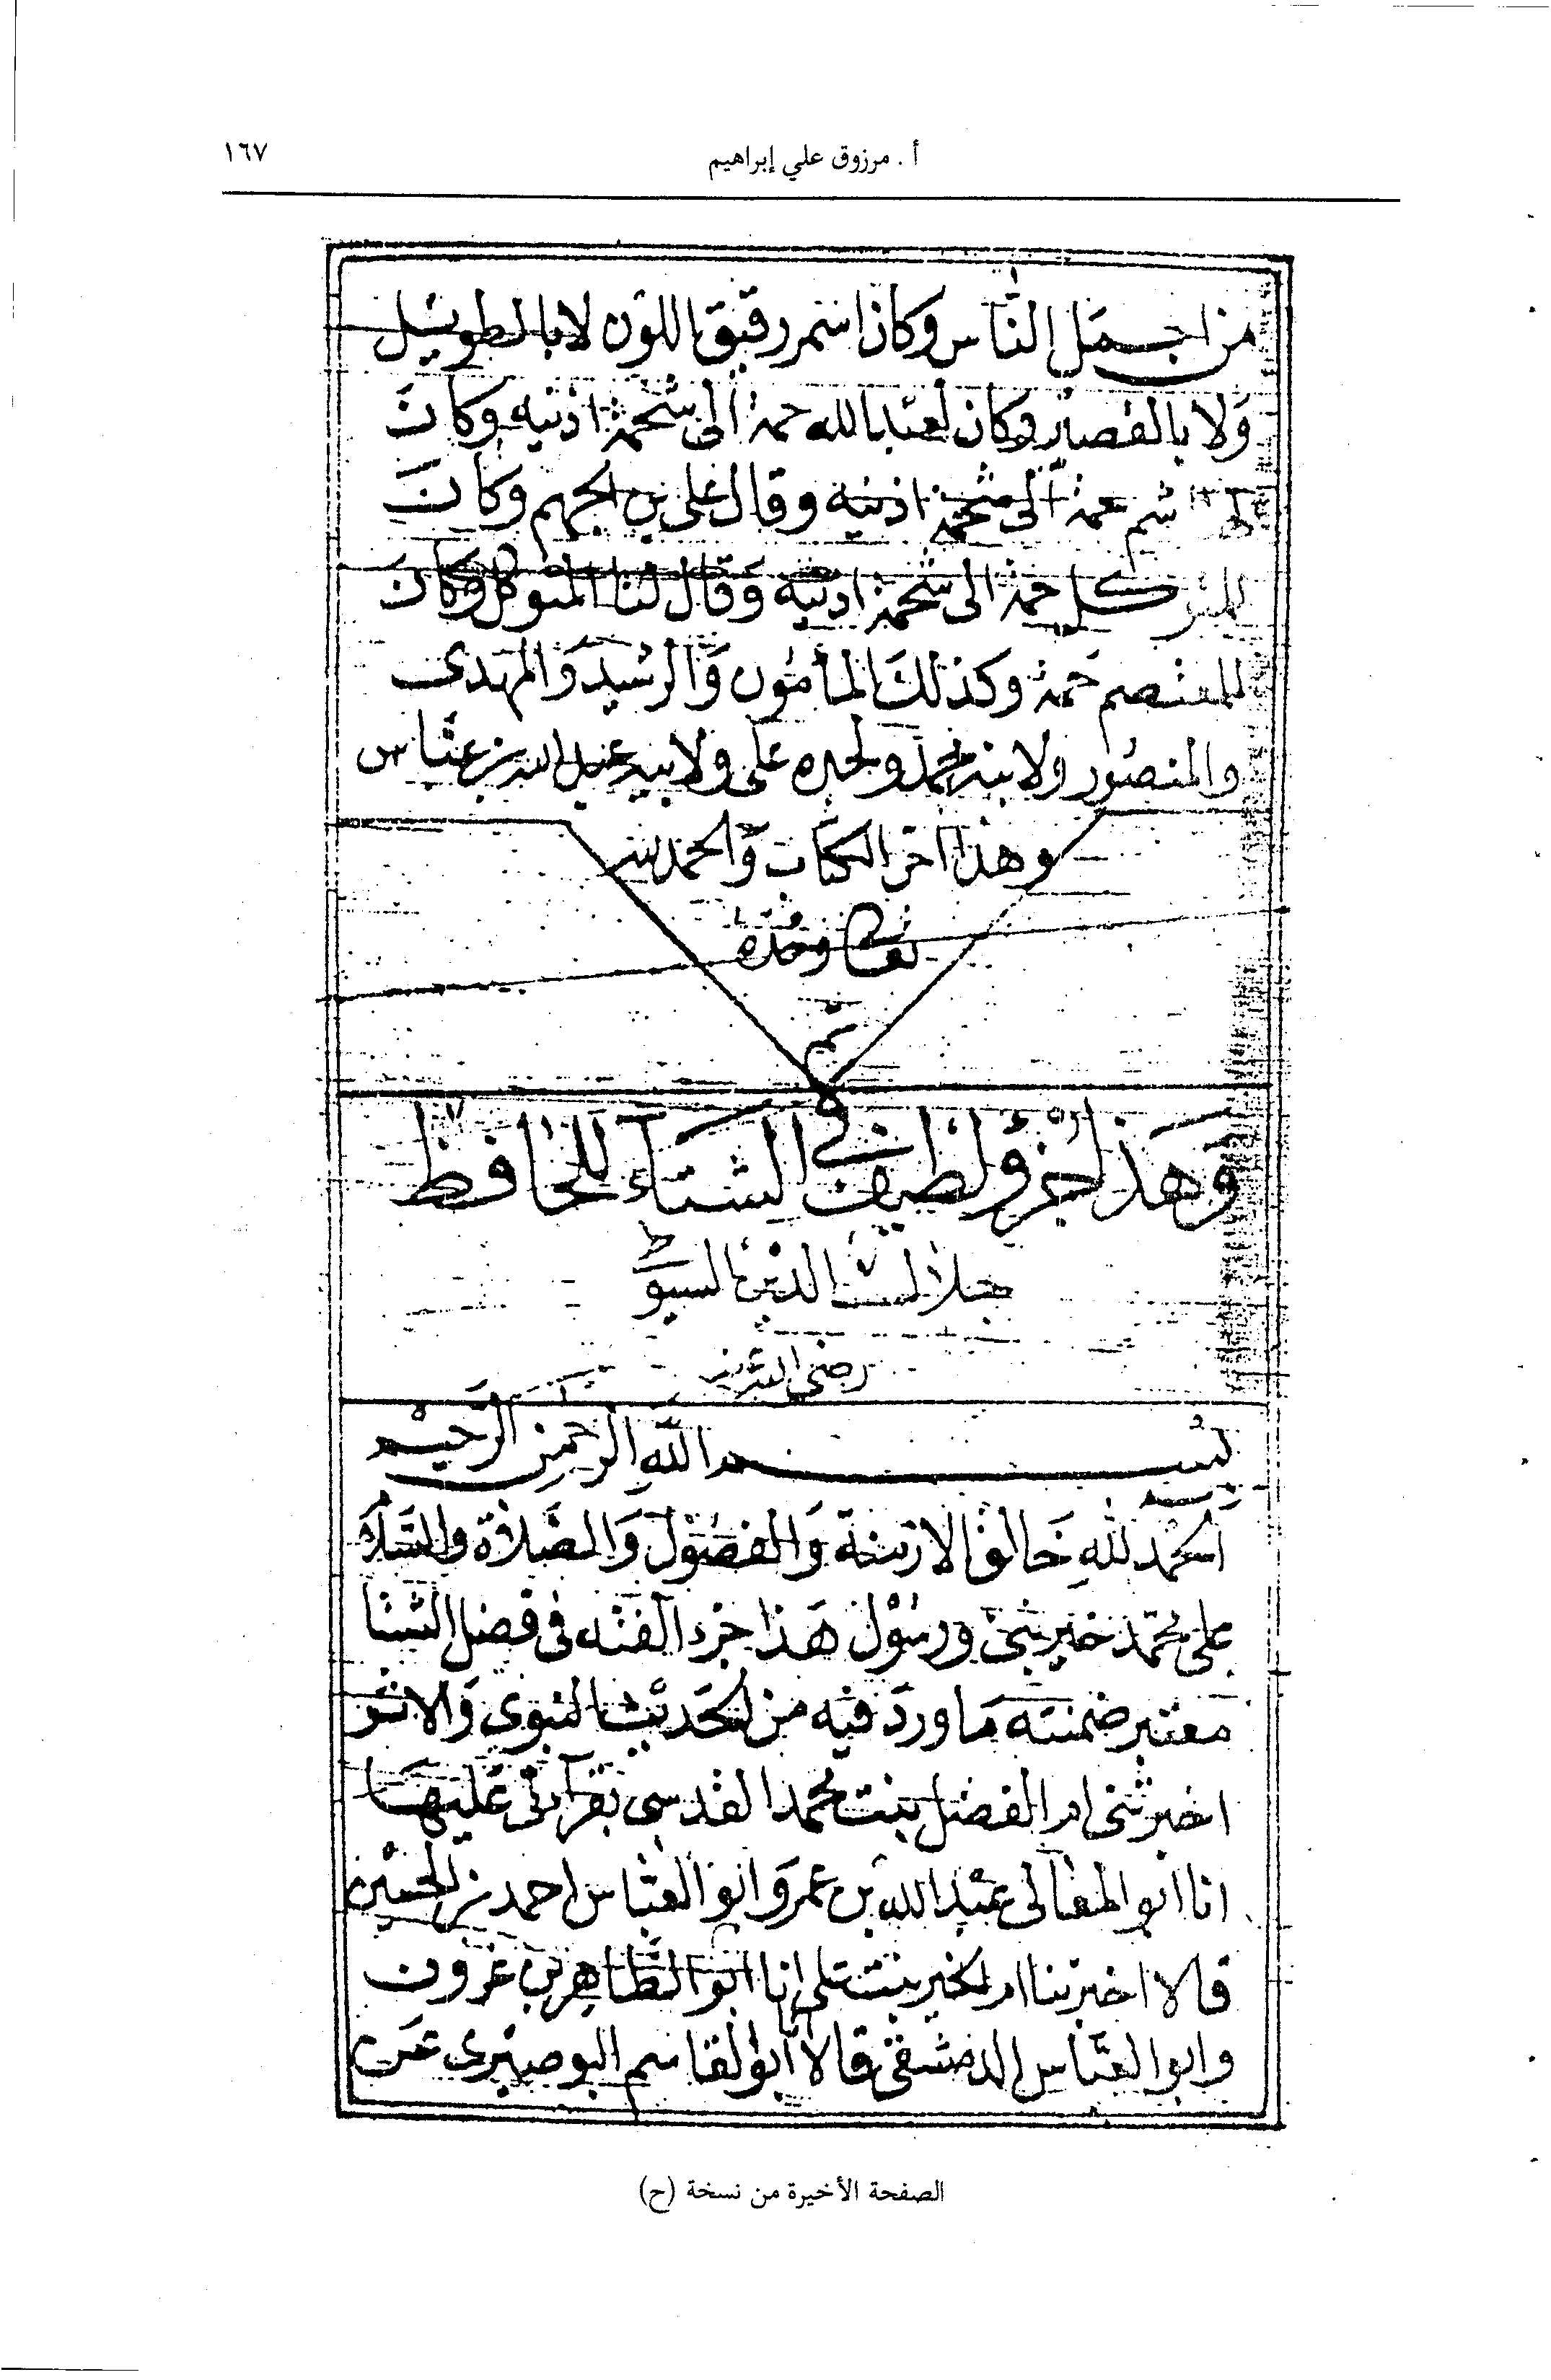 أ. مرزوق علي إبراهيم
١٦٧
من اجمل الناس وكان اسمر رقيق اللون لا بالطويل
ولا بالقصير وكان لعبد الله جمة الى شحمة اذنيه وكان
شم جمة الى شحمة اذنيه وقال على بن الجهم وكان
للمتوكل جمة الى شحمة اذنيه وقال لنا المتوكل وكان
للمعتصم جمة وكذلك المأمون والرشيد والمهدى
والمنصور ولابنه محمد ولجده على ولابيه عبد الله بن عباس
وهذا اخر الكتاب والحمد لله
تعالى وحده
تم
وهذا جزؤ لطيف في الشتاء للحافظ
جلال الدين السيوطى
رضى الله عنه
بسم الله الرحمن الرحيم
الحمد لله خالق الازمنة والفصول والصلاة والسلام
على محمد خير نبى ورسول هذا جزء الفته فى فضل الشتا
معتبر ضمنته ما ورد فيه من الحديث النبوي والاثر
اخبرتنى ام الفضل بنت محمد القدسى بقرآءتى عليها
انا ابو المعالى عبد الله بن عمر وابو العباس احمد بن الحسين
قالا اخبرتنا ام الخير بنت على انا ابو الطاهر بن عزون
وابو العباس الدمشقى قالا انا ابو القاسم البوصيرى عن
الصفحة الأخيرة من نسخة (ح)